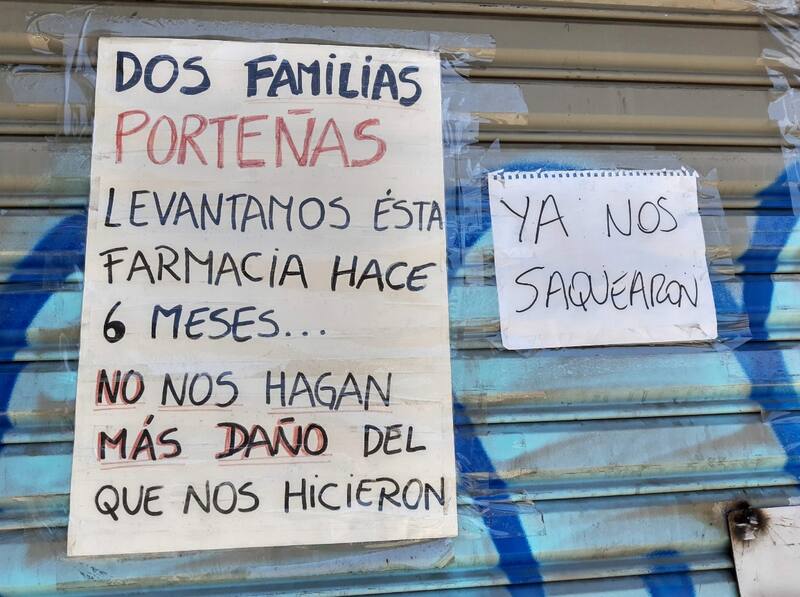 DOS FAMILIAS
PORTEÑAS
LEVANTAMOS ÉSTA
FARMACIA HACE
6 MESES...
NO NOS HAGAN
MÁS DAÑO DEL
QUE NOS HICIERON
YA NOS
SAQUEARON